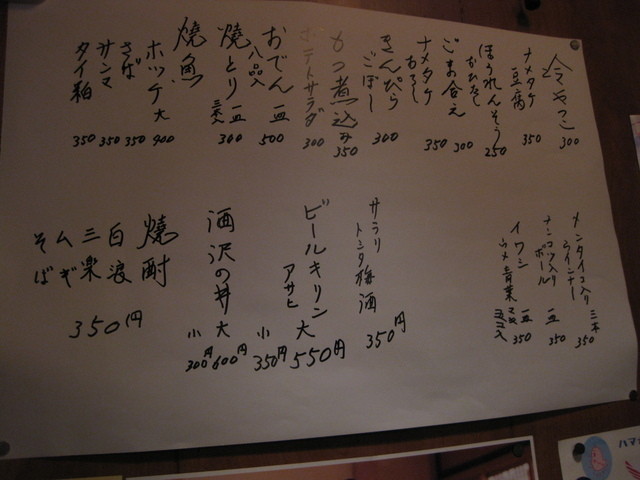 冷やっこ 300
ナメタケ豆腐 350
ほうれんそうおひたし 250
ごま合え 300
ナメタケおろし 350
きんぴらごぼー 300
もつ煮込み 350
ポテトサラダ 300
おでん八品入一皿 500
焼とり三本入一皿 300
焼魚
ホッケ大 900
さば 350
サンマ 350
タイ粕 350
メンタイコ入りウインナー三本 350
ナンコツ入りボール一皿 350
イワシウメ青葉 350
サラリトシタ梅酒 350円
ビールキリンアサヒ
大 550円
小 350円
酒沢の井
大 600円
小 300円
焼酎
白波
三楽
ムギ
そば
350円
ハマ